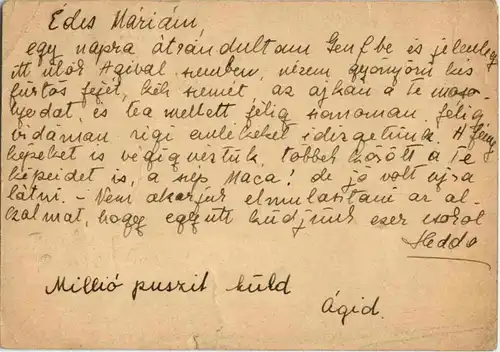 Édes Máriám
egy napra átrándultam Genfbe és jelenleg
itt ülök Ágival szemben, nézem gyönyörű kis
fürtös fejét, kék szemét az ajkán a Te moso-
lyodat, és tea mellett félig szomorúan, félig
vidáman régi emlékeket idézgetünk. A fény
képeket is végignéztük, többek között a Te
képeidet is, a szép Maca! de jó volt ujra
látni. – Nem akarjuk elmulasztani az al-
kalmat, hogy együtt küdjünk ezer csókot
Hedda
Millió puszit küld
Ágid.